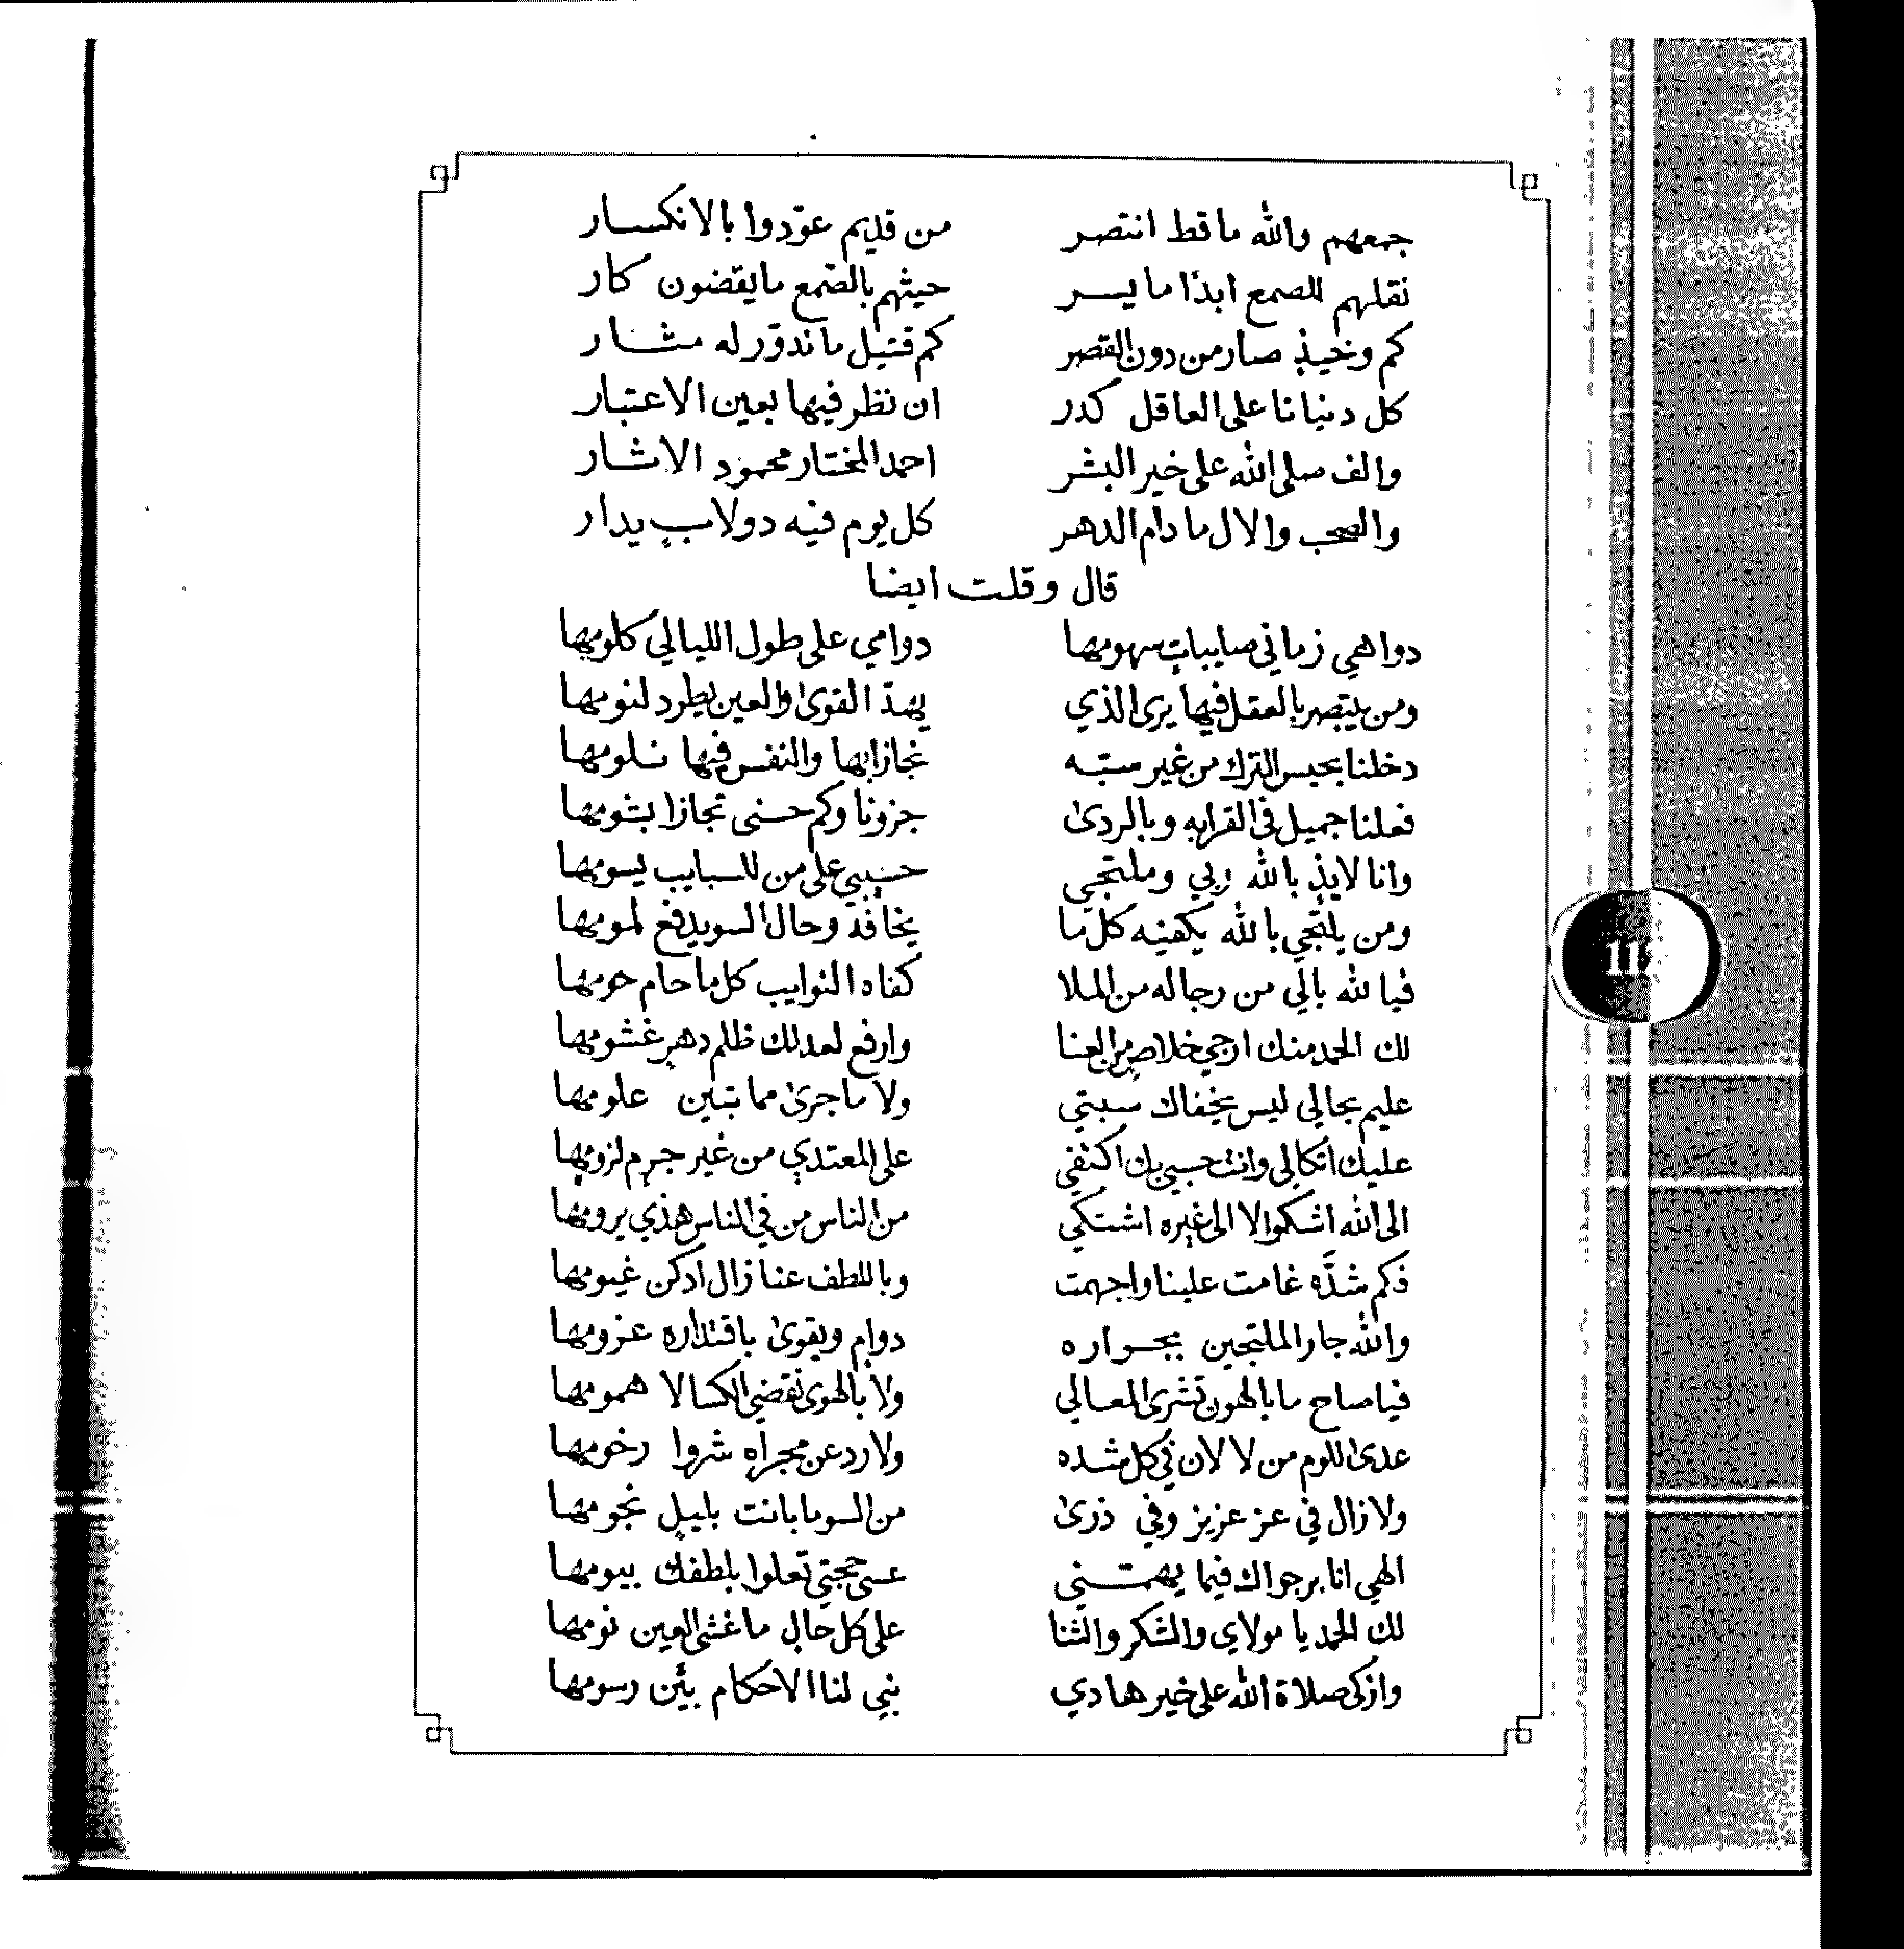 جمعهم والله ما قط انتصر من قديم عوّدوا بالانكسار
نقلهم للصمع ابدًا ما يسر حيثهم بالصّمع ما يقضون كار
كم وخيذٍ صار من دون القصر كم قتيل ما ندوّر له مثار
كل دنيانا على العاقل كدر ان نظر فيها بعين الاعتبار
والف صلى الله على خير البشر احمد المختار محمودِ الاثار
والصحب والال ما دام الدهر كل يوم فيه دولابٍ يدار
قال وقلت ايضا
دواهي زماني صايباتٍ سهومها دوامي على طول الليالي كلومها
ومن يبتصر بالعقل فيها يرى الذي يهدّ القوى والعين يطرد لنومها
دخلنا بحبس الترك من غير سبّه نجازا بها والنفس فيها نلومها
فعلنا جميل في القرابه وبالردى جزونا وكم حسنى تجازا بشومها
وانا لايذٍ بالله ربي وملتجي حسيبي على من للسبايب يسومها
ومن يلتجي بالله يكفيه كل ما يخافه وحال السو يدفع لمومها
فيا لله يالي من رجاله من الملا كفاه النوايب كل ما حام حومها
لك الحمد منك ارجي خلاصٍ من العنا وارفع لعدلك ظلم دهرٍ غشومها
عليم بحالي ليس يخفاك سبتي ولا ما جرى مما تبين علومها
عليك اتكالي وانت حسبي بك اكتفي على المعتدي من غير جرم لزومها
الى الله اشكوا لا الى غيره اشتكي من الناس من في الناس هذي يرومها
فكم شدّه غامت علينا واجهمت وباللطف عنا زال ادكن غيومها
والله جار الملتجين بجواره دوامٍ ويقوى باقتداره عزومها
فيا صاح ما بالهون تشرى المعالي ولا بالهوى تقضي الكسالا همومها
عدى اللوم من لا لان في كل شده ولا رد عن مجراه شروا رخومها
ولا زال في عز عزيز وفي ذرى من السو ما بانت بليلٍ نجومها
الهي انا برجواك فيما يهمّني عسى حجتي تعلوا بلطفك بيومها
لك الحمد يا مولاي والشكر والثنا على كل حالٍ ما غشى العين نومها
وازكى صلاة الله على خير هادي نبي لنا الاحكام بيّن رسومها
١١١